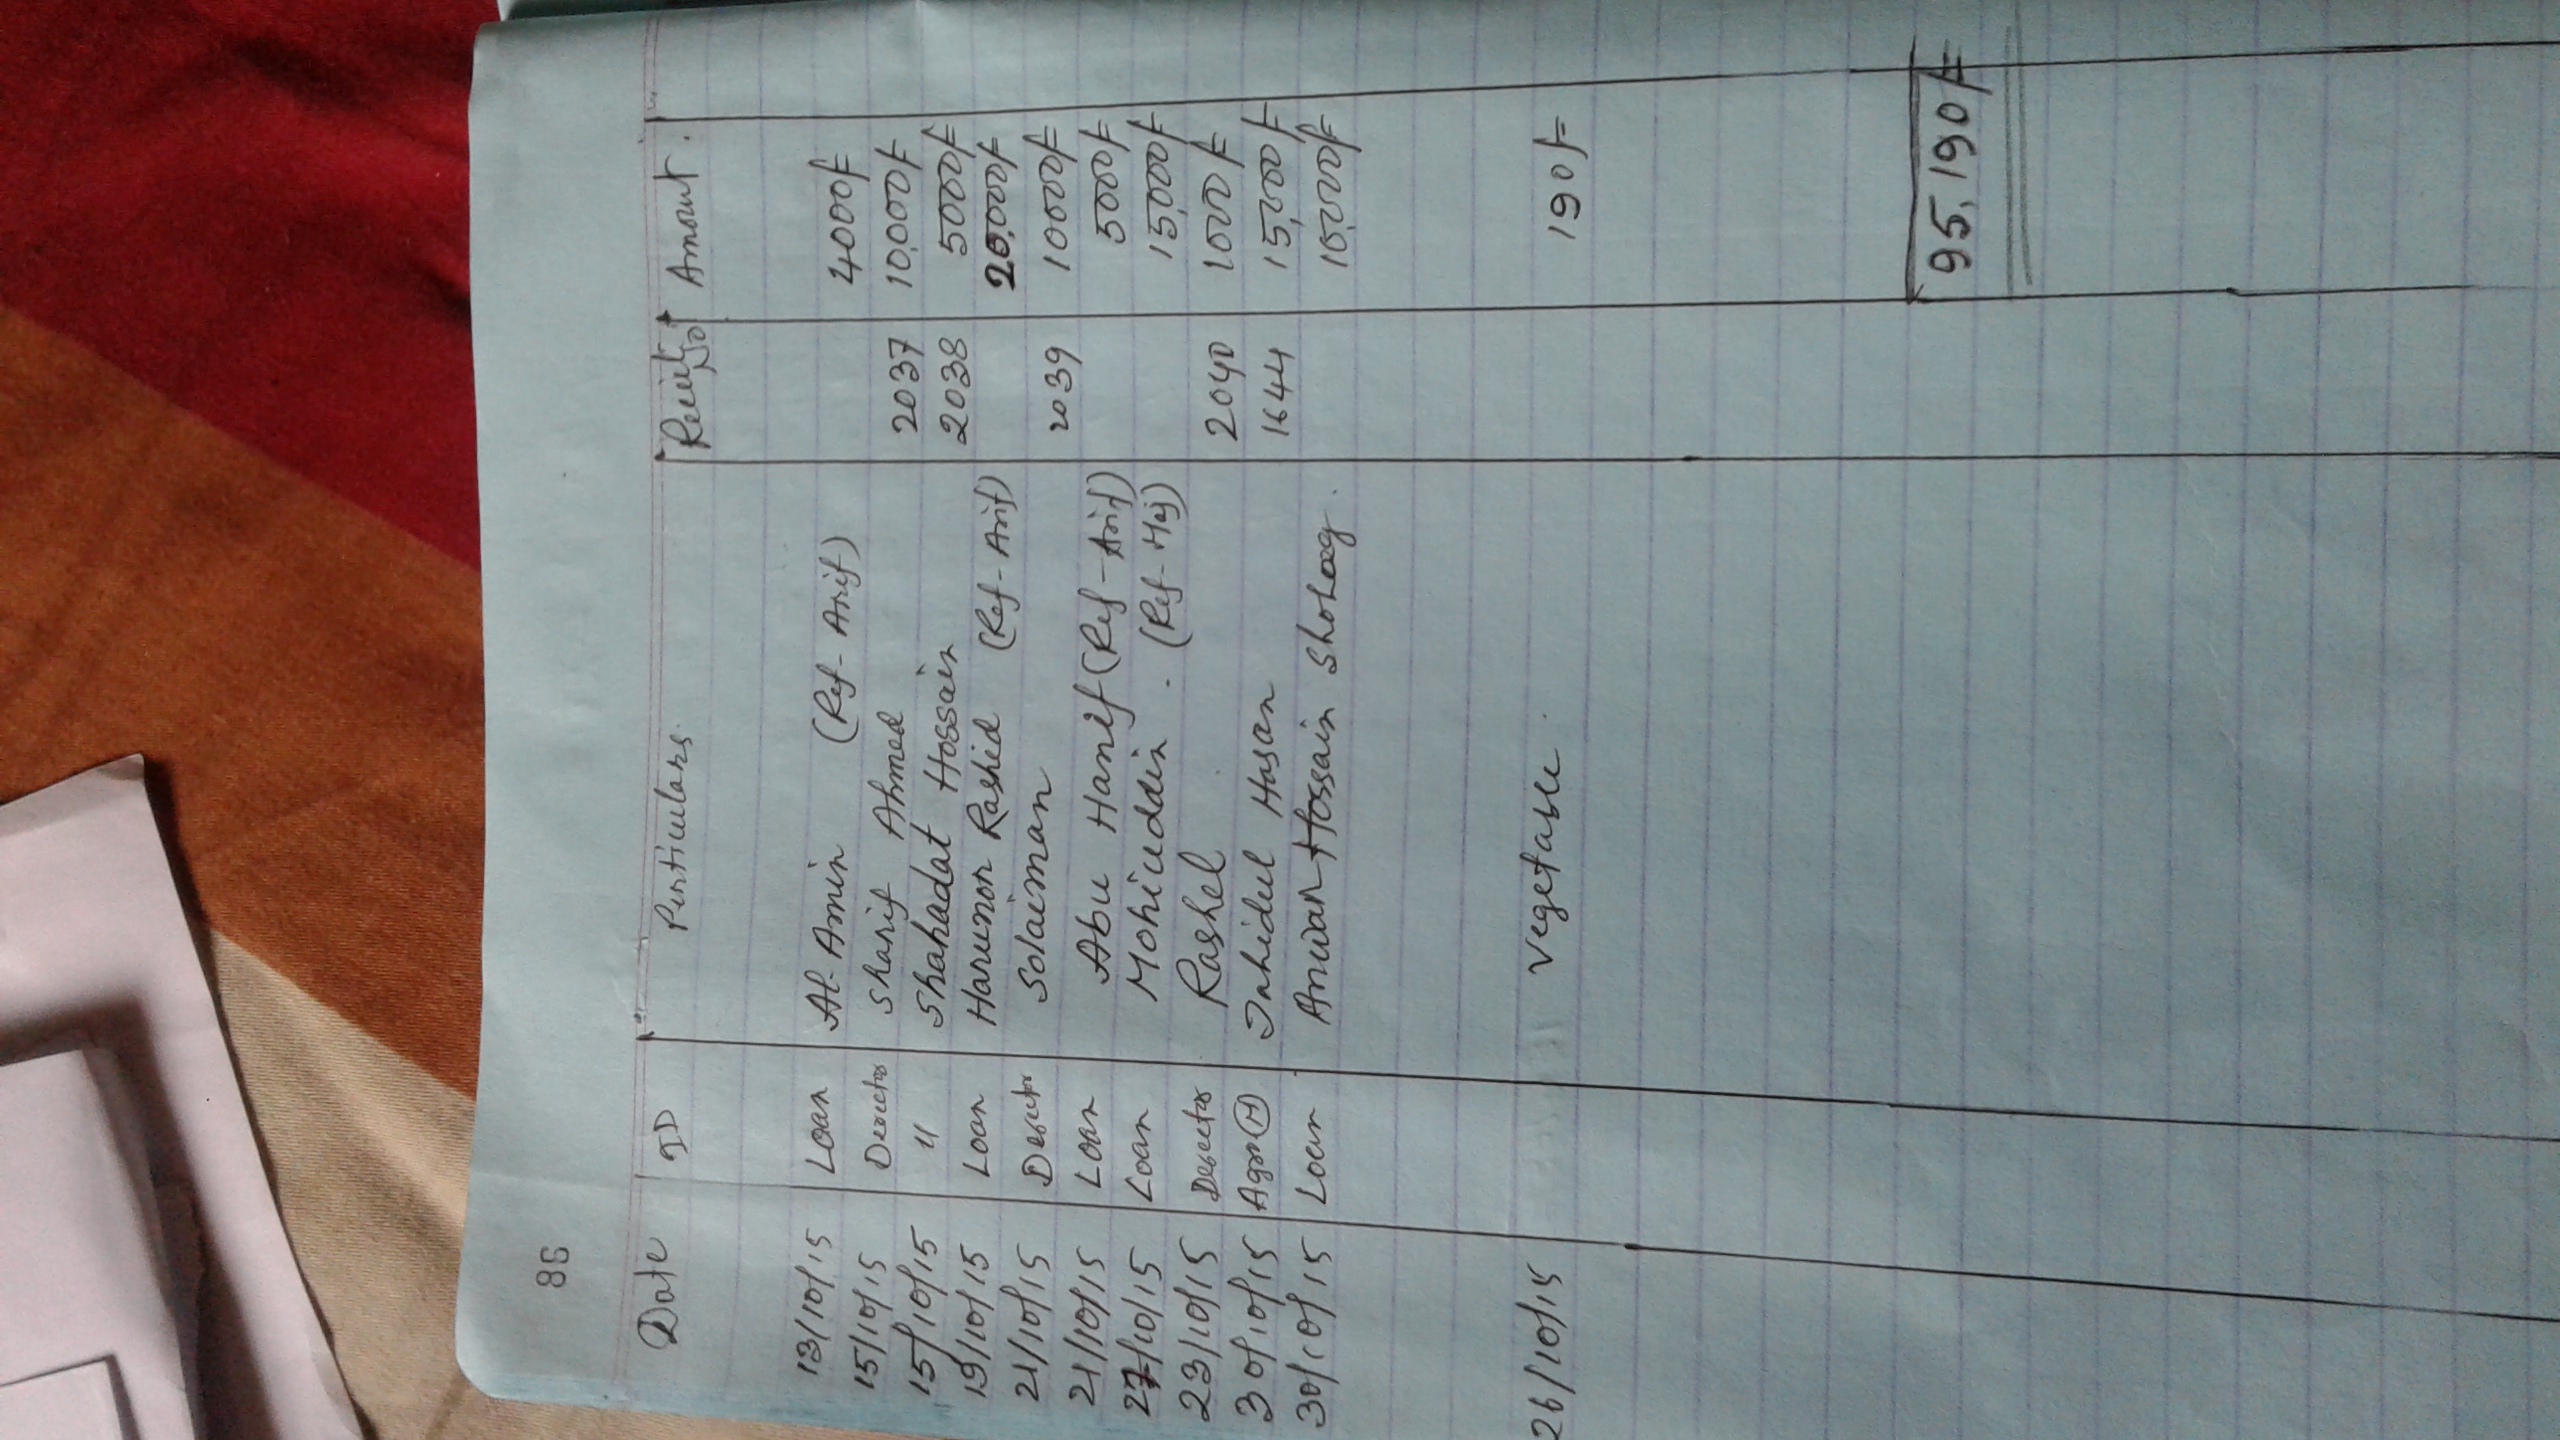 86
Date ID Perticulars Reciet No Amount.
13/10/15 Loan Al-Amin (Ref-Arif) 4000/=
15/10/15 Derector Sharif Ahmed 2037 10,000/=
15/10/15 " Shahadat Hossain 2038 5000/=
19/10/15 Loan Harunor Rashid (Ref-Arif) 20,000/=
21/10/15 Derector Solaiman 2039 10000/=
21/10/15 Loan Abu Hanif (Ref-Arif) 5000/=
27/10/15 Loan Mohiuddin . (Ref-Maj) 15,000/=
23/10/15 Derector Rashel 2040 1000/=
30/10/15 Agro (M) Jahidul Hasan 1644 15,000/=
30/10/15 Loan Anwar Hossain Shohag. 10,000/=
26/10/15 Vegetable 190/=
95,190/=